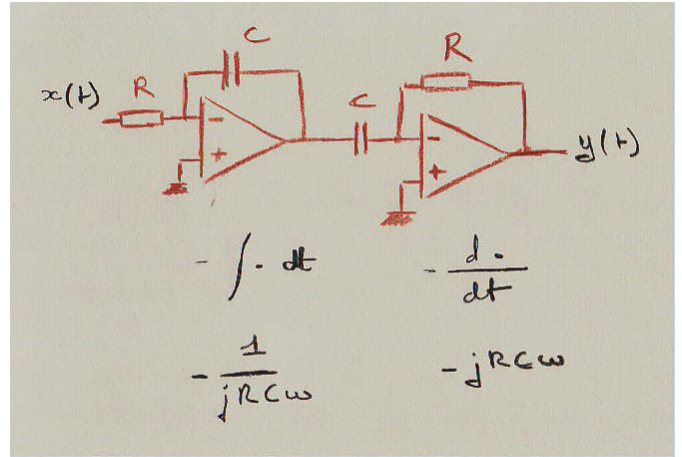 C
R
x(t)
R
C
y(t)
-
+
-
+
- ∫ · dt
- d · / dt
- 1 / jRCω
- jRCω